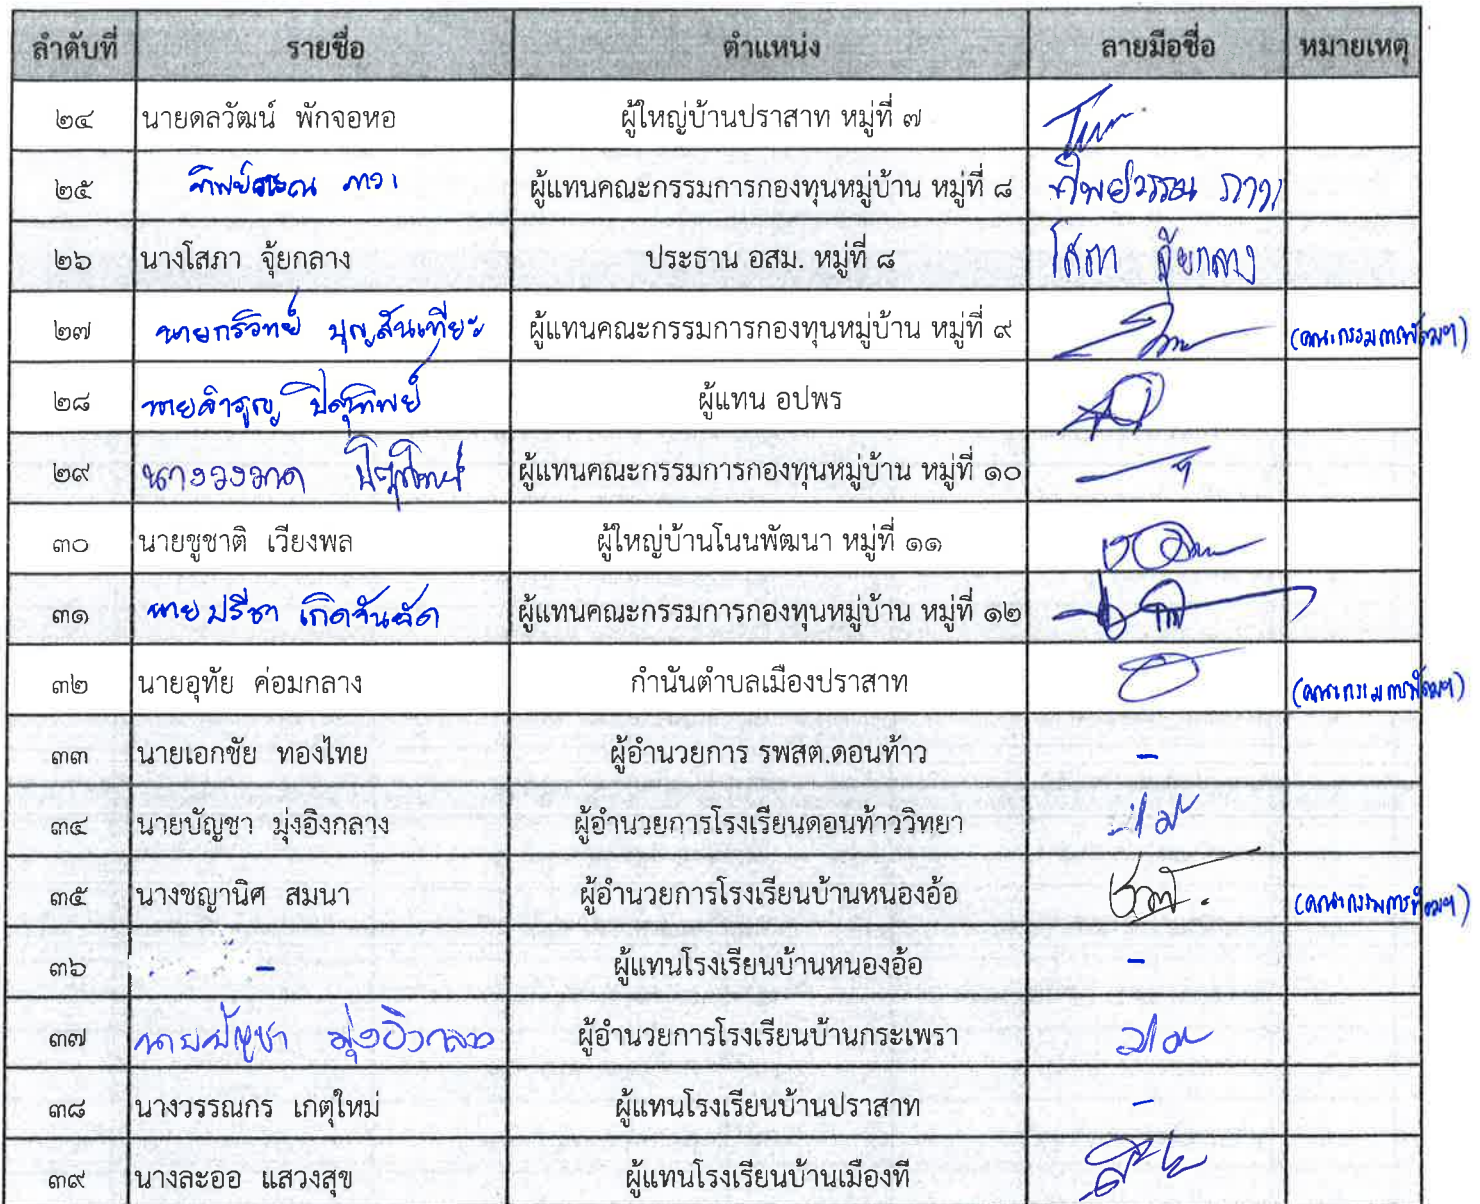 ลำดับที่ รายชื่อ ตำแหน่ง ลายมือชื่อ หมายเหตุ
๒๔ นายดลวัฒน์ พักจอหอ ผู้ใหญ่บ้านปราสาท หมู่ที่ ๗
๒๕ ทิพย์วรรณ ภาวา ผู้แทนคณะกรรมการกองทุนหมู่บ้าน หมู่ที่ ๘ ทิพย์วรรณ ภาวา
๒๖ นางโสภา จุ้ยกลาง ประธาน อสม. หมู่ที่ ๘ โสภา จุ้ยกลาง
๒๗ นายกรวิทย์ บุญสันเทียะ ผู้แทนคณะกรรมการกองทุนหมู่บ้าน หมู่ที่ ๙ (คณะกรรมการพัฒนาฯ)
๒๘ นายจำรูญ ปิตุทิพย์ ผู้แทน อปพร
๒๙ ปิตุทิพย์ ผู้แทนคณะกรรมการกองทุนหมู่บ้าน หมู่ที่ ๑๐
๓๐ นายชูชาติ เวียงพล ผู้ใหญ่บ้านโนนพัฒนา หมู่ที่ ๑๑
๓๑ นายปรีชา เกิดจันอัด ผู้แทนคณะกรรมการกองทุนหมู่บ้าน หมู่ที่ ๑๒
๓๒ นายอุทัย ค่อมกลาง กำนันตำบลเมืองปราสาท (คณะกรรมการพัฒนาฯ)
๓๓ นายเอกชัย ทองไทย ผู้อำนวยการ รพสต.ดอนท้าว -
๓๔ นายบัญชา มุ่งอิงกลาง ผู้อำนวยการโรงเรียนดอนท้าววิทยา
๓๕ นางชญานิศ สมนา ผู้อำนวยการโรงเรียนบ้านหนองอ้อ (คณะกรรมการพัฒนาฯ)
๓๖ - ผู้แทนโรงเรียนบ้านหนองอ้อ -
๓๗ นายบัญชา มุ่งอิงกลาง ผู้อำนวยการโรงเรียนบ้านกระเพรา
๓๘ นางวรรณกร เกตุใหม่ ผู้แทนโรงเรียนบ้านปราสาท -
๓๙ นางละออ แสวงสุข ผู้แทนโรงเรียนบ้านเมืองที